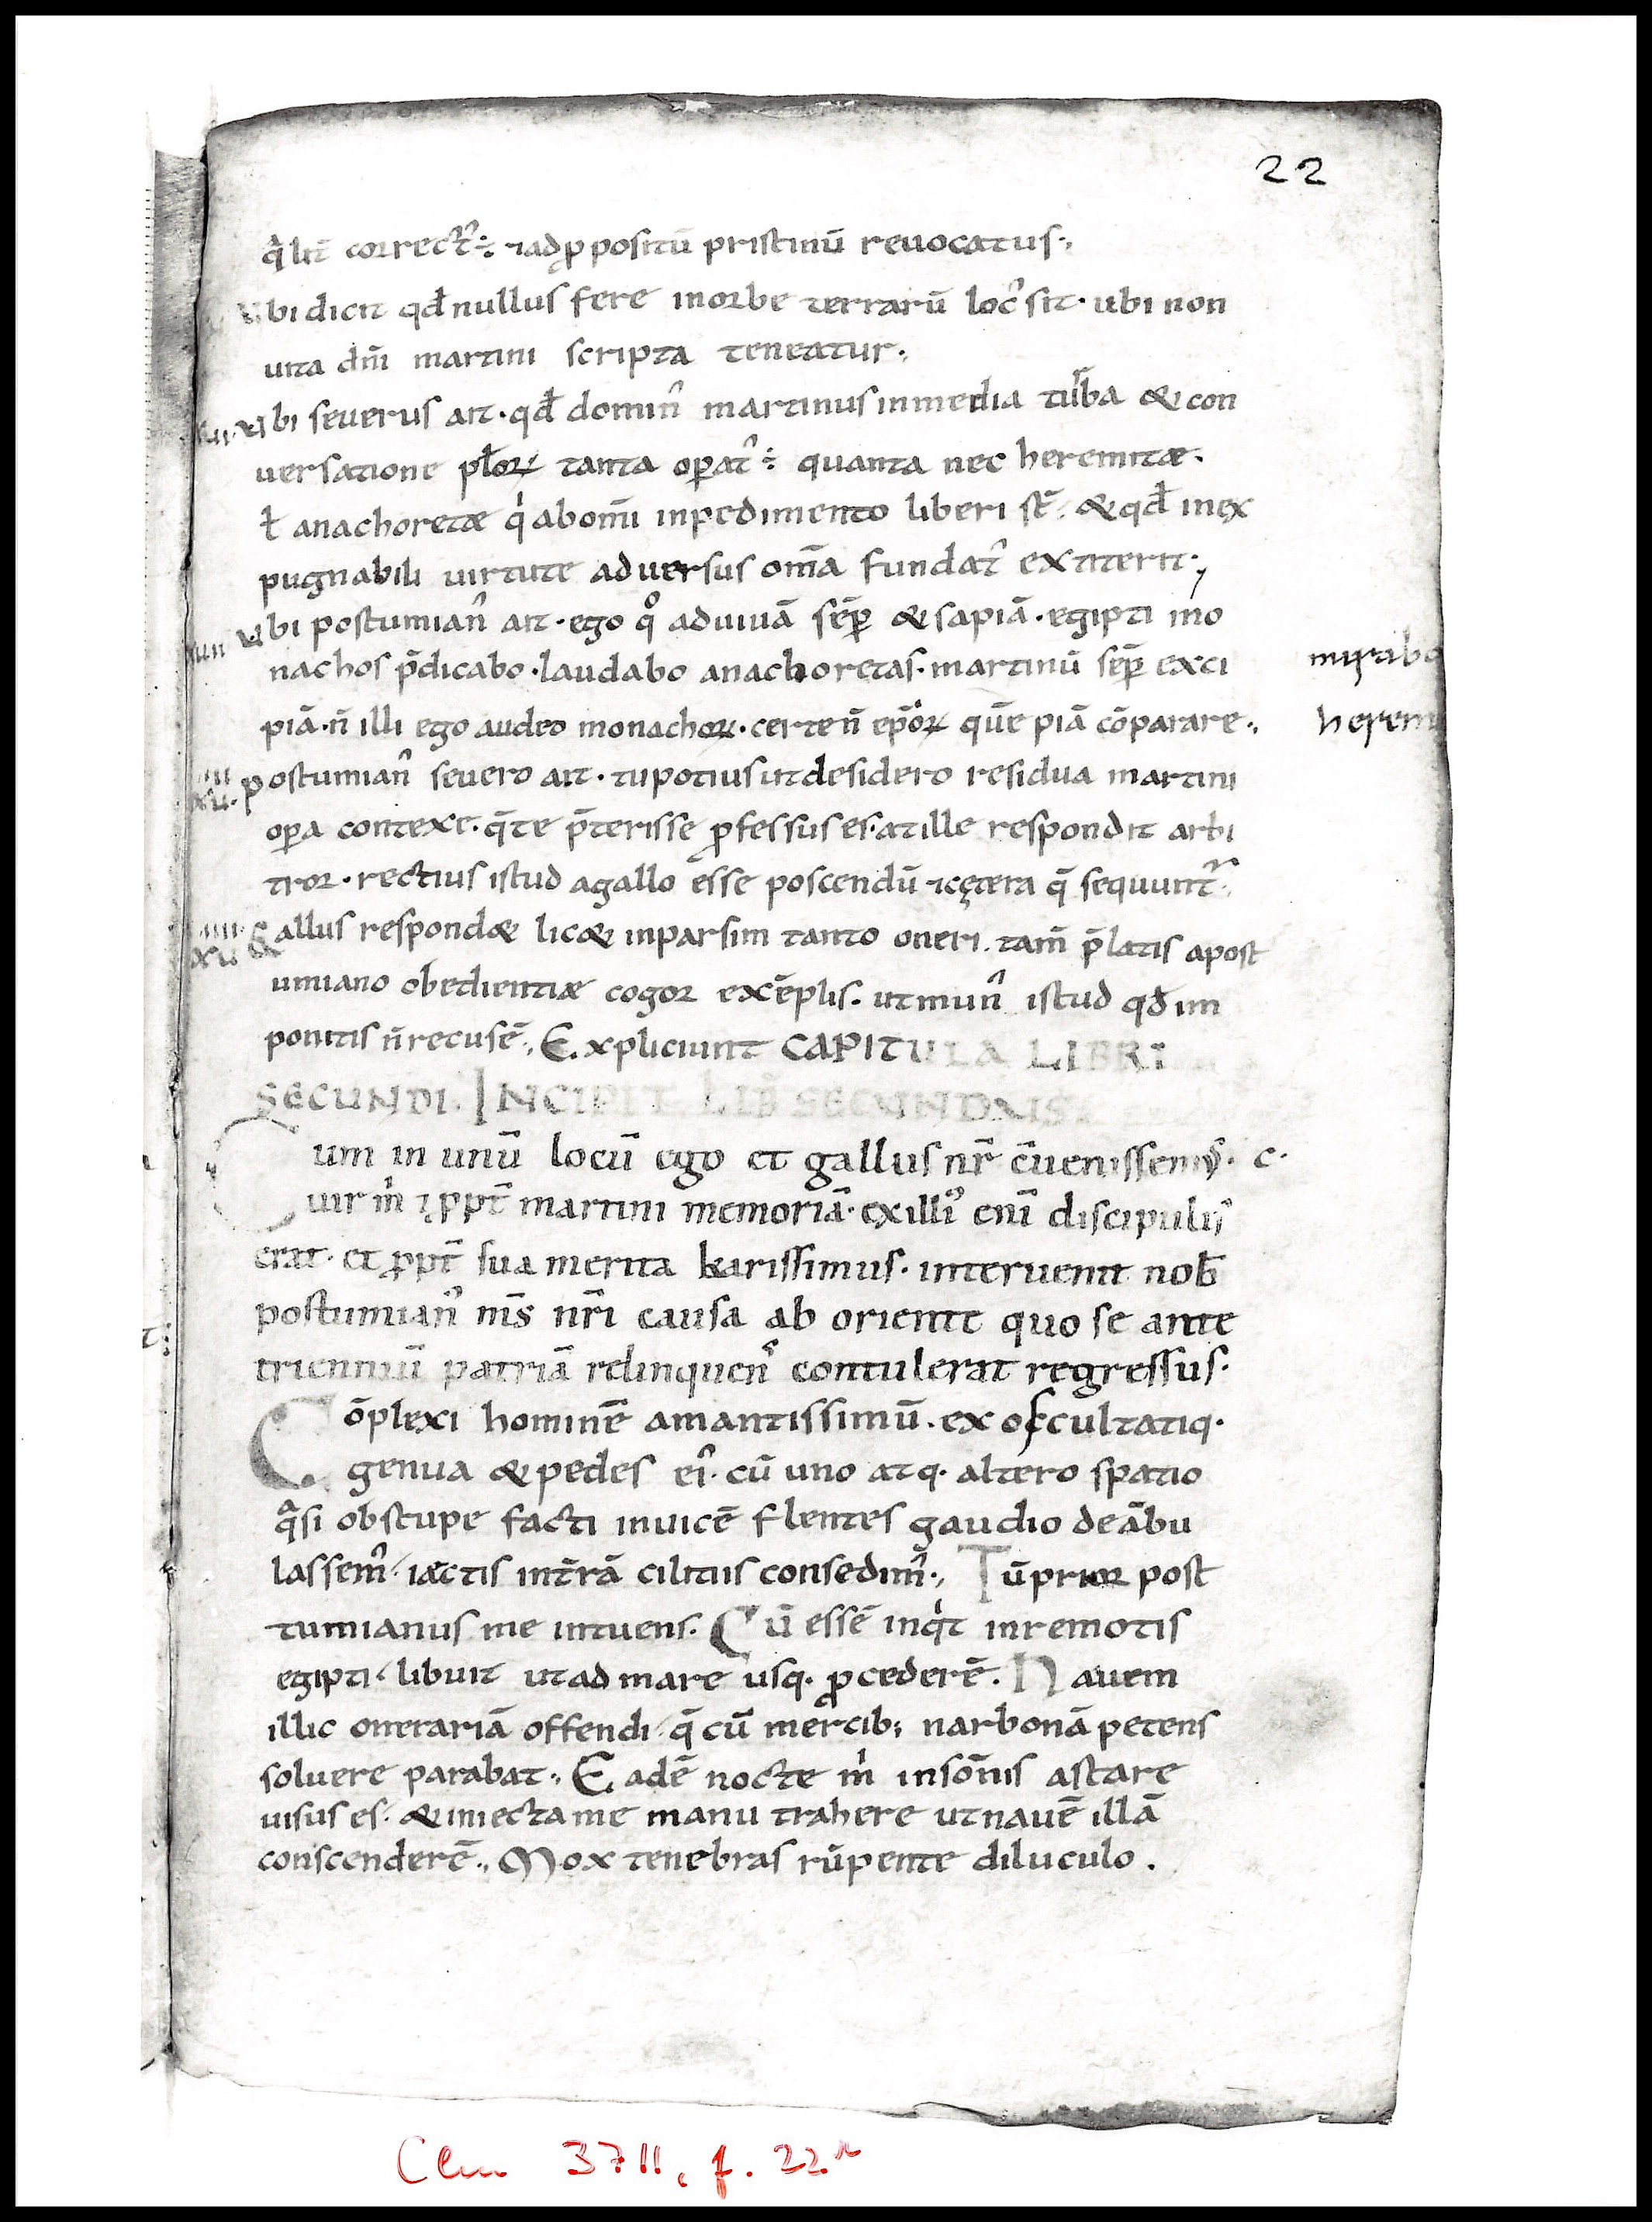 22
q̍lit̄ correct᷒ ÷ ⁊ adp̱positū pristinū reuocatus·,
Vbi dicit qđ nullus fere in orbe terrarū loc᷒ sit · ubi non
uita dn̄i martini scripta teneatur·,
Vbi seuerus ait · qđ domin᷒ martinus in media turba & con
uersatione pl̄oꝝ tanta oꝑat᷒ ÷ quanta nec heremitæ ·
ł anachoretæ q̍ ab om̄i inpedimento liberi st̄ · & qđ inex
pugnabili uirtute aduersus om̄a fundat᷒ extiterit·,
Vbi postumian᷒ ait · ego qͦ aduiuā sēꝑ & sapiā · egipti mo
nachos p̄dicabo · laudabo anachoretas · martinū sēꝑ exci mirabo
piā · n̄ illi ego audeo monachoꝝ · certe n̄ ep̄oꝝ quē piā cōparare·, herem
postumian᷒ seuero ait · tu potius ut desidero residua martini
oꝑa contexe · q̄ te p̄terisse ꝓfessus es · at ille respondit arbi
tror · rectius istud a gallo esse poscendū ⁊ cętera q̄ sequunt᷒·
Gallus respondæ licæ inpar sim tanto oneri · tam̄ p̄latis a post
umiano obedientiæ cogor exēplis · ut mun᷒ istud qđ im
ponitis n̄ recusē·, Expliciunt CAPITULA LIBRI
SECUNDI · INCIPIT LIB SECUNDUS
Cum in unū locū ego et gallus nr̄ c̄uenissem᷒ · c ·
uir m̍ ⁊ ppt̄ martini memoriā · ex illi᷒ eni discipulis
erat · et ꝓpt̄ sua merita karissimus · interuenit nob̄
postumian᷒ m̄s nr̄i causa ab oriente quo se ante
trienniū patriā relinquens contulerat regressus ·
Cōplexi hominē amantissimū · ex osculatiq·
genua & pedes ei᷒ · cū uno atq· altero spatio
qͣsi obstupefacti inuicē flentes gaudio deābu
lassem᷒ / iactis int̄rā cilitiis consedim᷒·, Tū prior post
tumianus me intuens · Cū essē inq̍t in remotis
egipti / libuit ut ad mare usq· ꝓcederē · Nauem
illic onerariā offendi / q̄ cū mercib; narbonā petens
soluere parabat·, Eadē nocte m̍ in sōnis astare
uisus es · & iniecta me manu trahere ut nauē illā
conscenderē·, Mox tenebras rūpente diluculo ·
Clm 3711, f. 22r